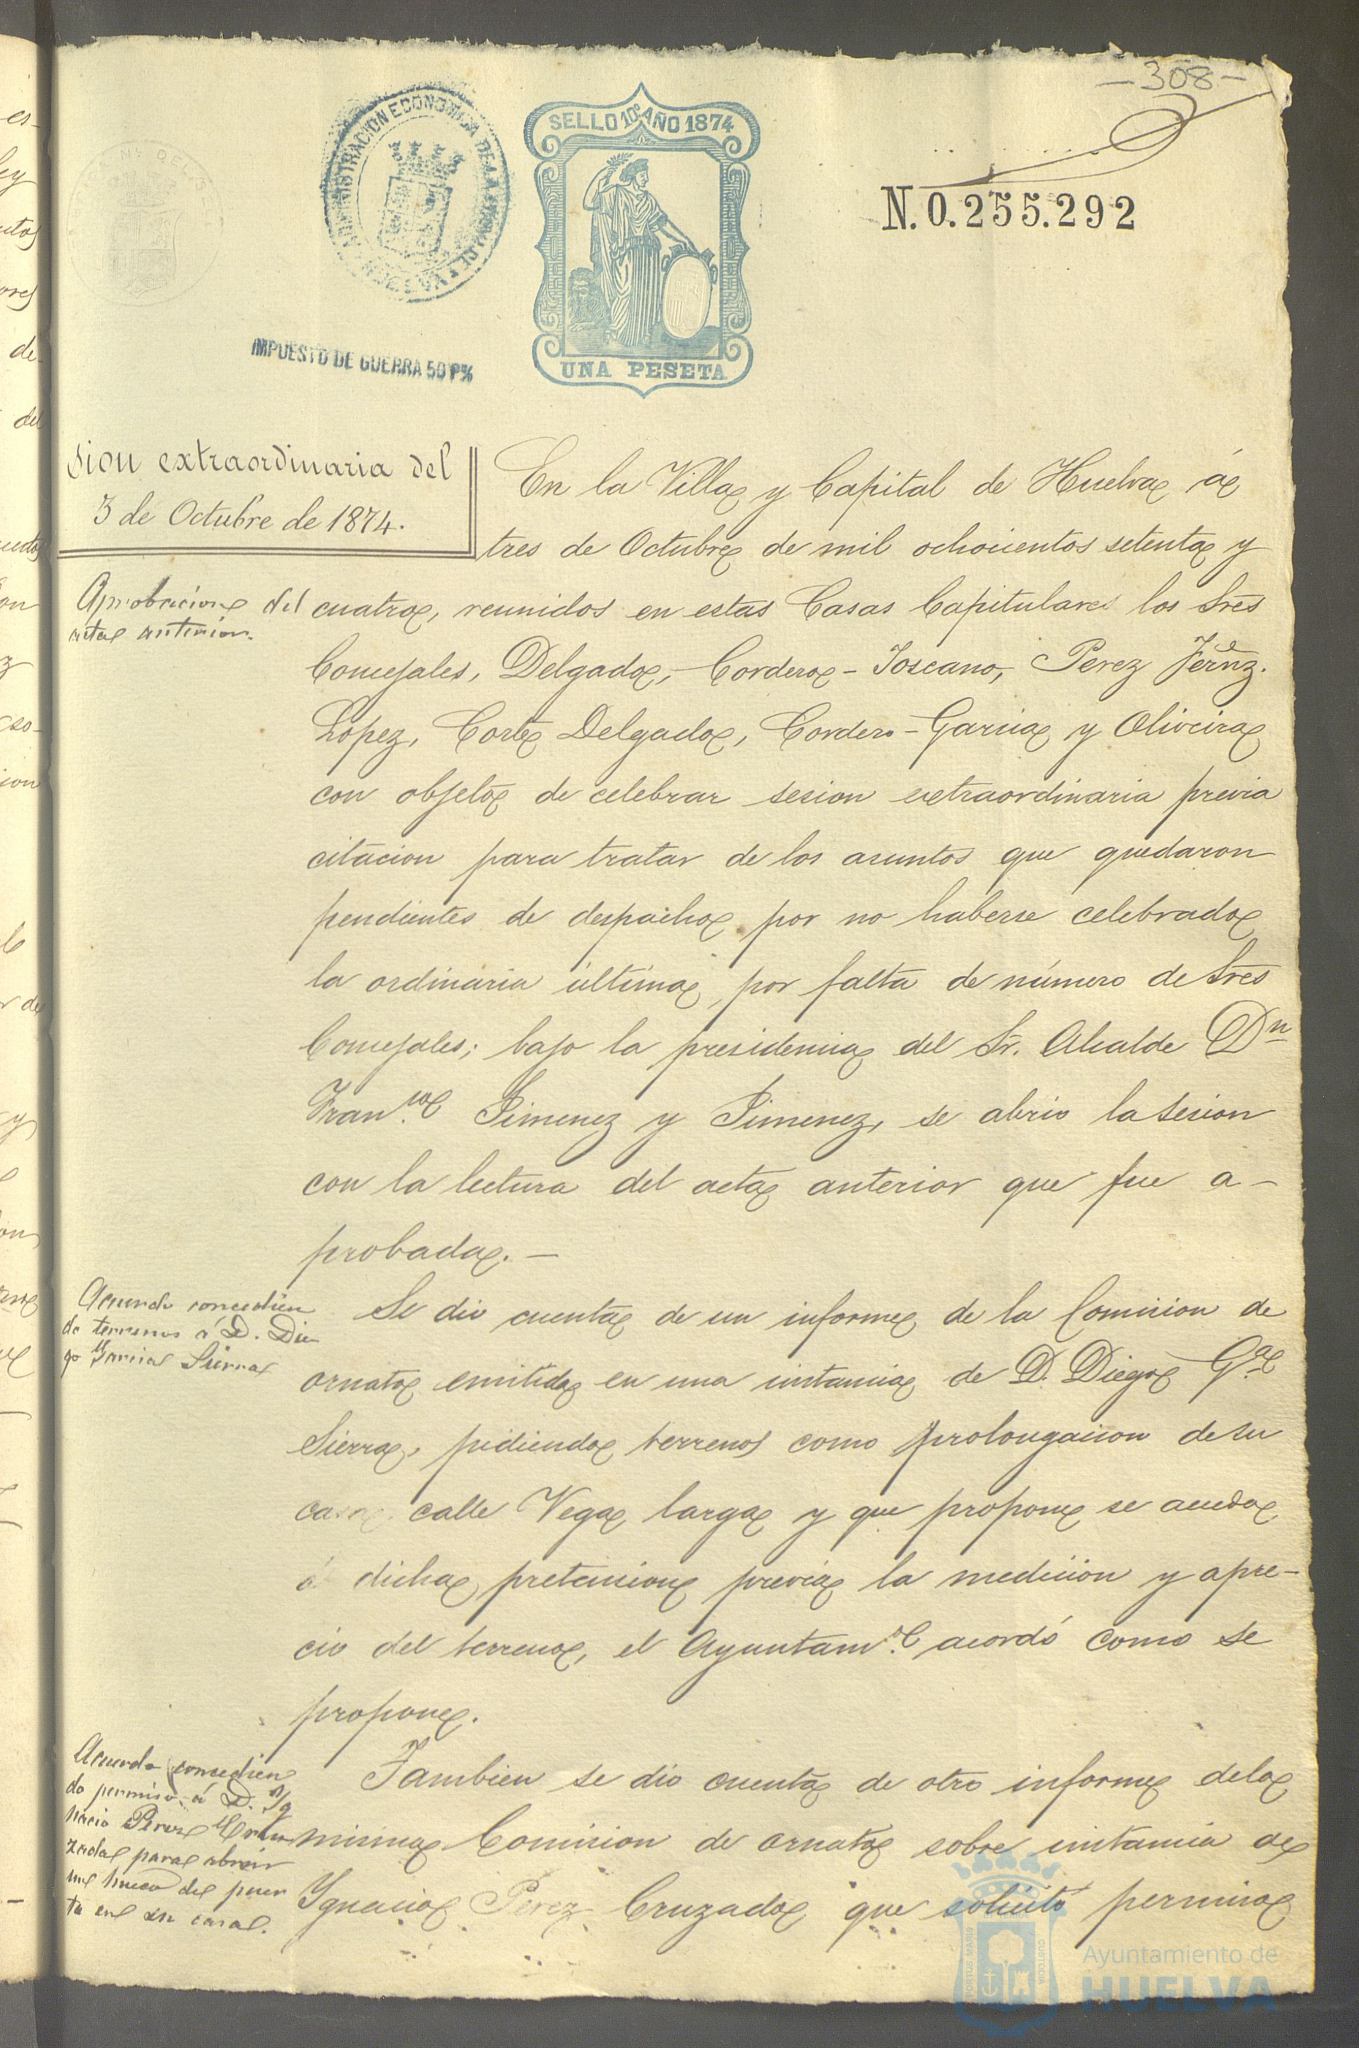 -308-
SELLO 10º AÑO 1874
ADMINISTRACION ECONOMICA DE LA
HUELVA
N. 0.255.292
IMPUESTO DE GUERRA 50 P%
UNA PESETA
sion extraordinaria del
3 de Octubre de 1874.
En la Villa y Capital de Huelva á
tres de Octubre de mil ochocientos setenta y
Aprobacion del
acta anterior.
cuatro, reunidos en estas Casas Capitulares los Sres
Concejales, Delgado, Cordero - Toscano, Perez Fernz.
Lopez, Corte Delgado, Cordero - Garcia y Oliveira
con objeto de celebrar sesion extraordinaria previa
citacion para tratar de los asuntos que quedaron
pendientes de despacho por no haberse celebrado
la ordinaria última, por falta de número de Sres
Concejales; bajo la presidencia del Sr. Alcalde Dn
Franco. Jimenez y Jimenez, se abrio la sesion
con la lectura del acta anterior que fue a-
probada. -
Acuerdo concedien
do terrenos á D. Die
go Garcia Sierra
Se dio cuenta de un informe de la Comision de
ornato emitido en una instancia de D. Diego Ga
Sierra, pidiendo terrenos como prolongacion de su
casa calle Vega larga y que propone se acceda
á dicha pretencion previa la medicion y apre-
cio del terreno, el Ayuntamto. acordó como se
propone.
Acuerdo concedien
do permiso á D. Yg
nacio Perez Cru
zado para abrir
un hueco de puer
ta en su casa.
Tambien se dio cuenta de otro informe dela
misma Comision de ornato sobre instancia de
Ygnacio Perez Cruzado que solicitó permiso
Ayuntamiento de
HUELVA